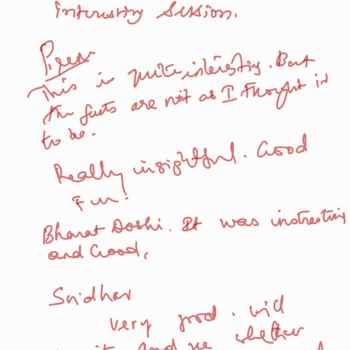 Interesting Session.
This is quite interesting. But
the facts are not as I thought it
to be.
Really insightful. Good
Fun!
Bharat Doshi. It was instresting
and Good,
Sridhar
very good. will
and see whether